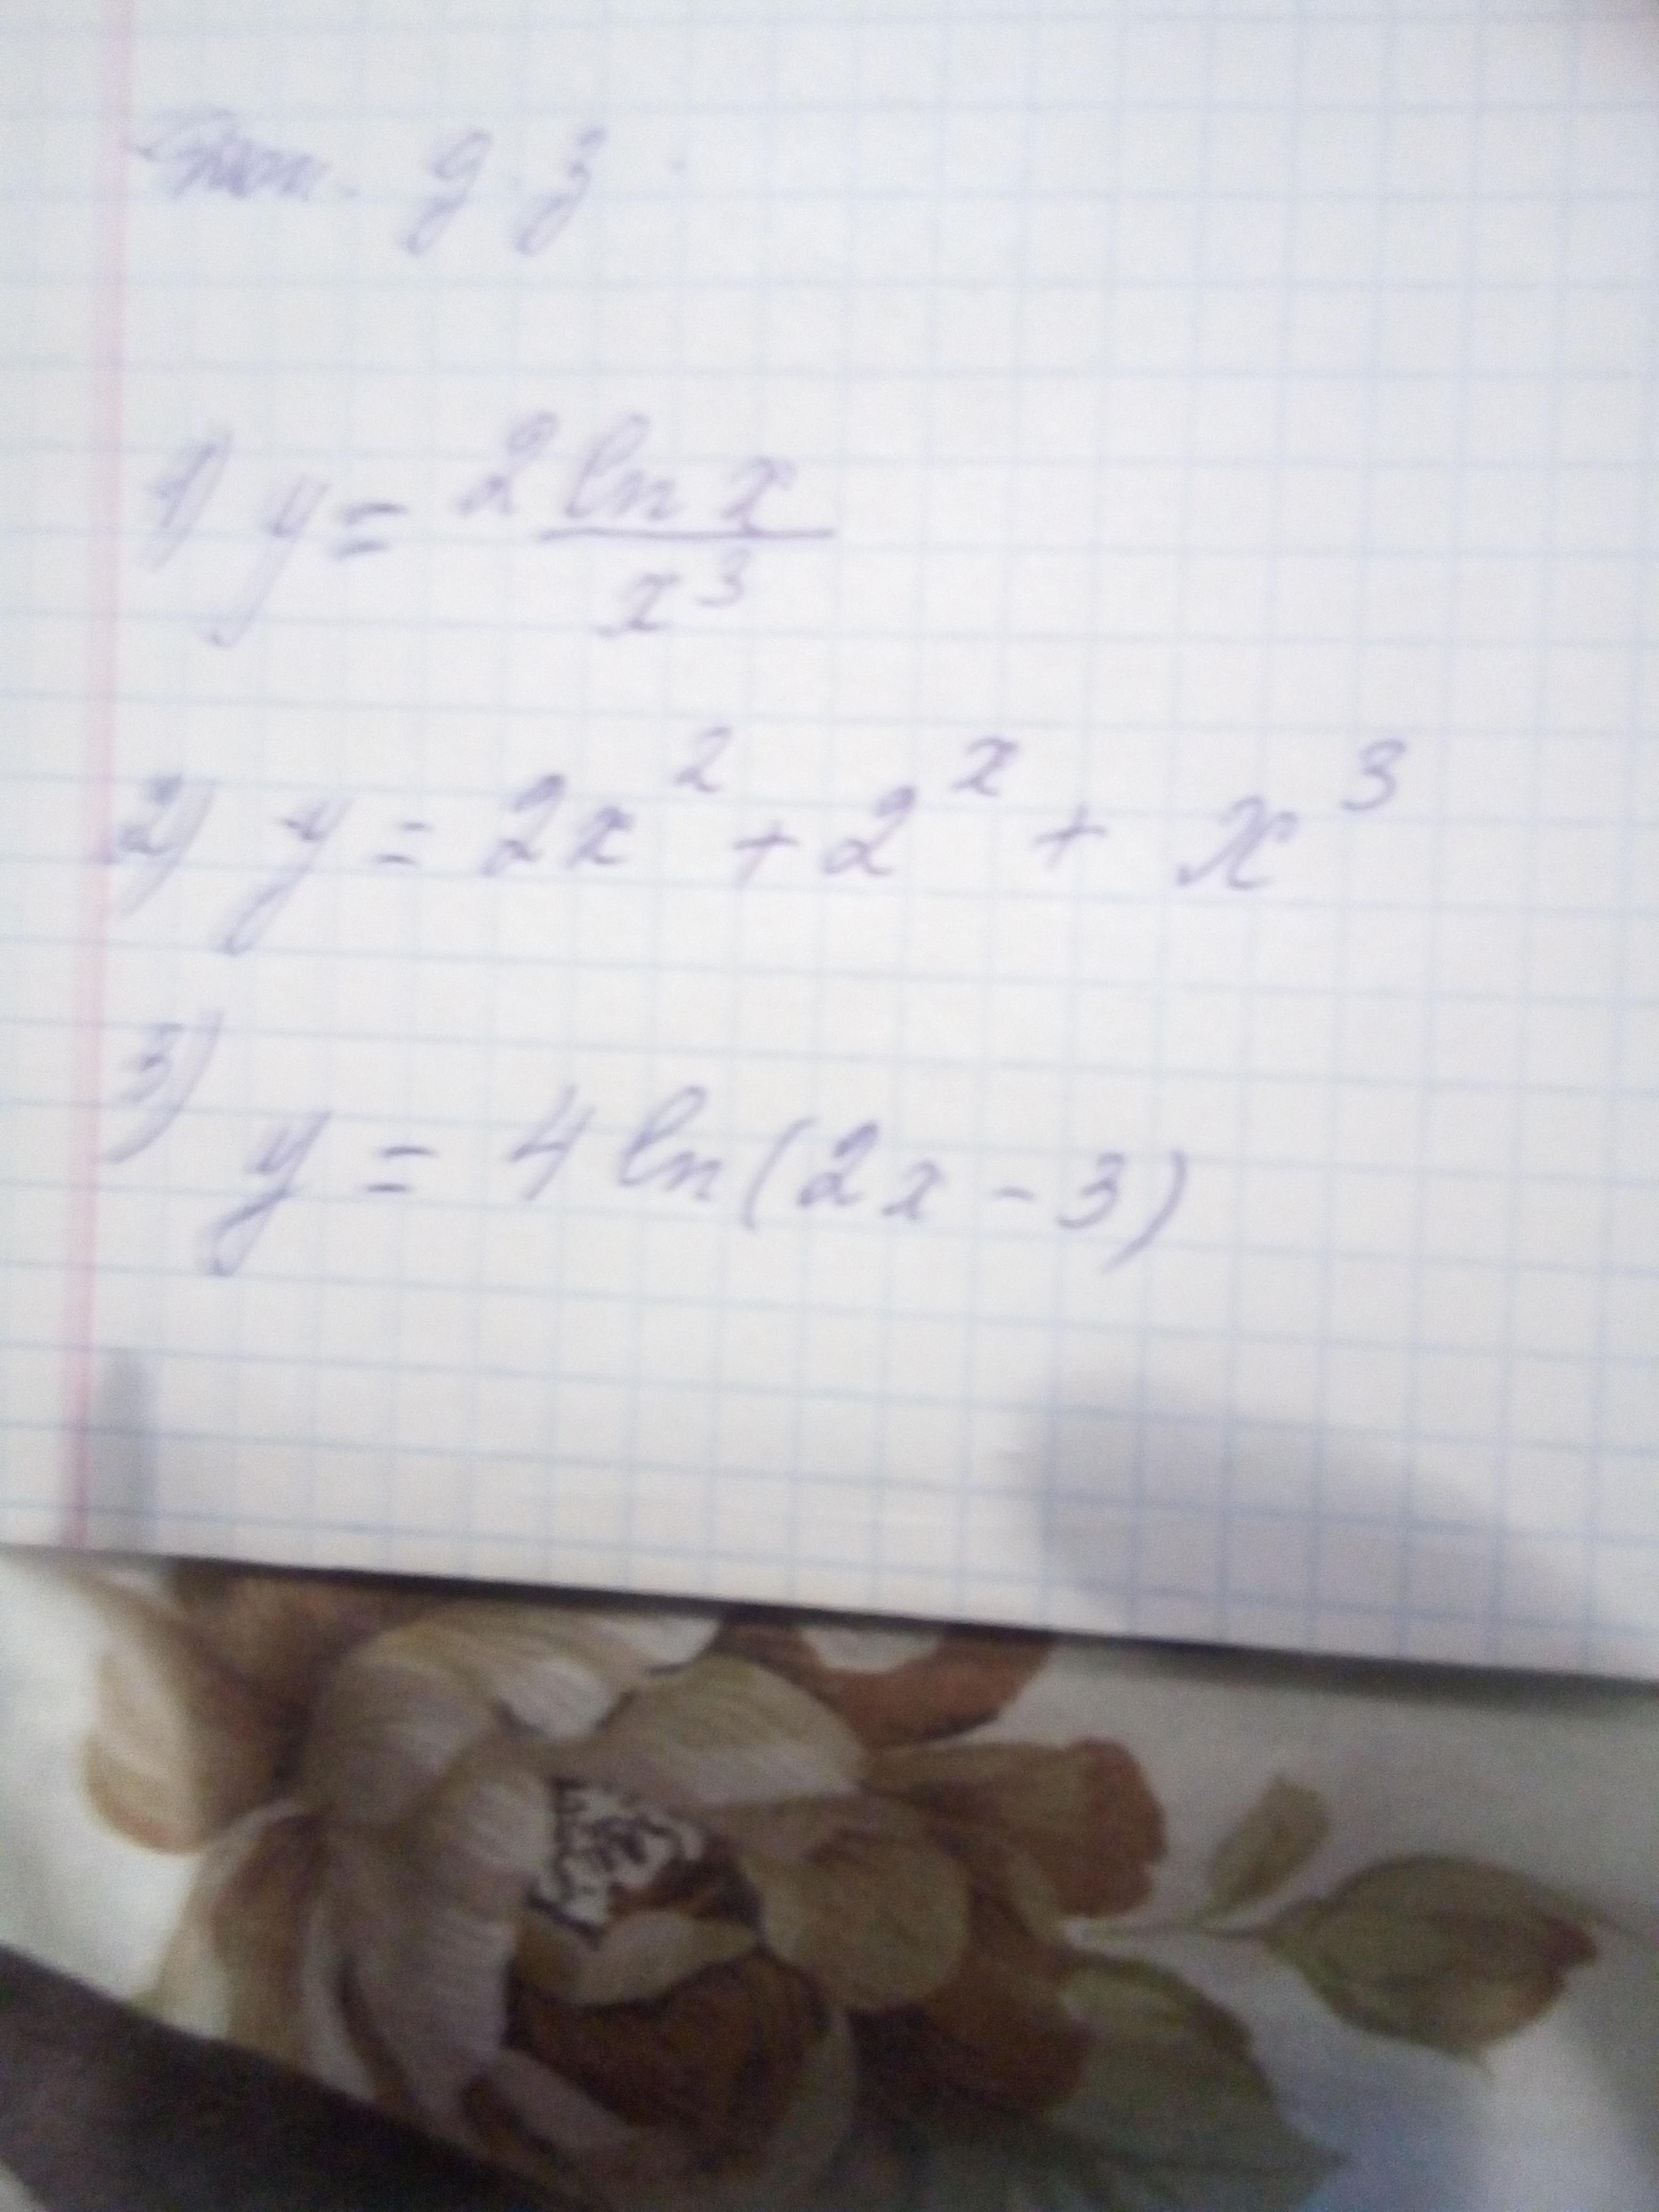 д. з.
1) y = 2 ln x / x³
2) y = 2x² + 2ˣ + x³
3) y = 4 ln(2x - 3)